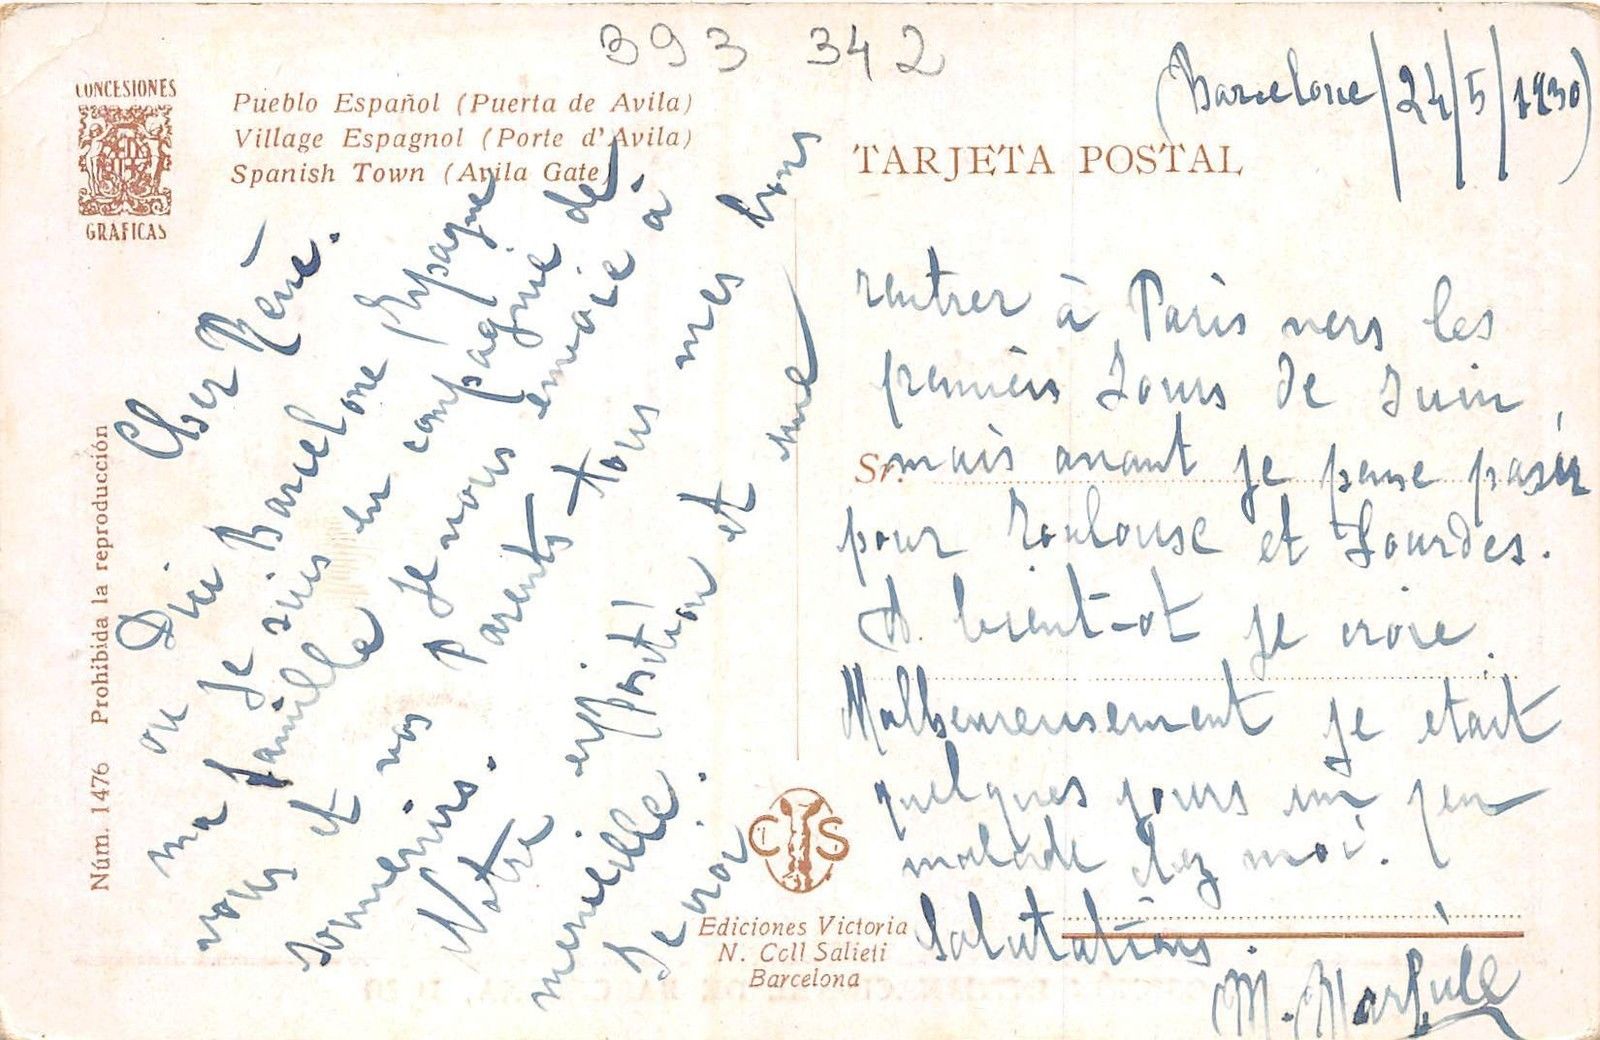 393 342
CONCESIONES
GRAFICAS
Pueblo Español (Puerta de Avila)
Village Espagnol (Porte d'Avila)
Spanish Town (Avila Gate)
TARJETA POSTAL
(Barcelone/24/5/1930)
Núm. 1476 Prohibida la reproducción
Cher René.
D'ici Barcelone Espagne
ou Je suis en compagnie de
ma famille Je vous envoie à
vous et vos Parents tous mes bons
souvenirs.
Notre exposition et une
merveille.
Je croi
rentrer à Paris vers les
premiers Jours de Juin,
Sr.
mais avant je pense paser
pour Toulouse et Lourdes.
A bient-ot je croie.
Malheureusement je etait
quelques jours un peu
malade chez moi.
Salutations.
M.
C S
Ediciones Victoria
N. Coll Salieti
Barcelona